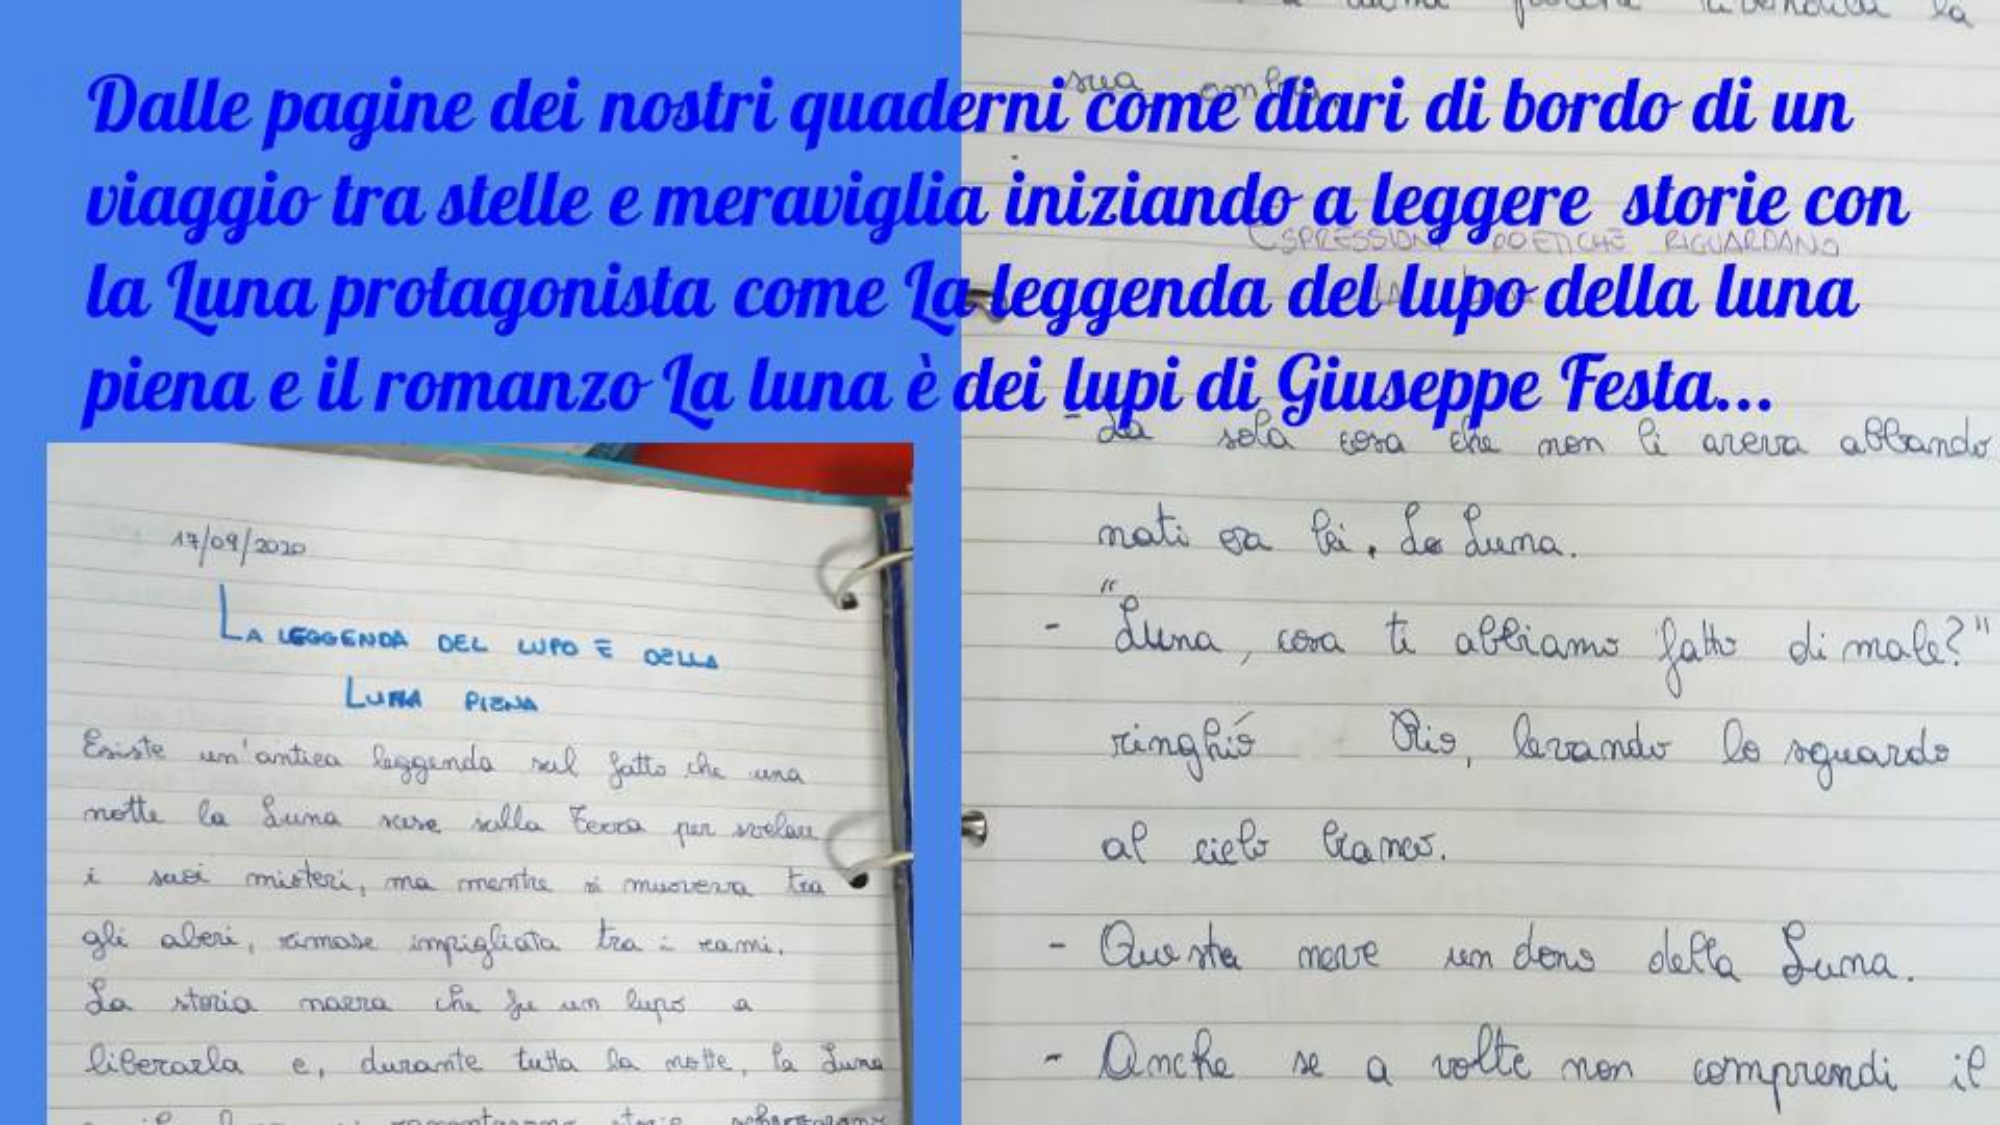 Dalle pagine dei nostri quaderni come diari di bordo di un
viaggio tra stelle e meraviglia iniziando a leggere storie con
la Luna protagonista come La leggenda del lupo della luna
piena e il romanzo La luna è dei lupi di Giuseppe Festa...
17/09/2020
LA LEGGENDA DEL LUPO E DELLA
LUNA PIENA
Esiste un'antica leggenda sul fatto che una
notte la Luna scese sulla Terra per svelare
i suoi misteri, ma mentre si muoveva tra
gli alberi, rimase impigliata tra i rami.
La storia narra che fu un lupo a
liberarla e, durante tutta la notte, la Luna
storie
la
sua ombra.
ESPRESSIONI POETICHE RIGUARDANO
- La sola cosa che non li aveva abbando
nati era lei. La Luna.
- "Luna, cosa ti abbiamo fatto di male?"
ringhiò Rio, levando lo sguardo
al cielo bianco.
- Questa neve un dono della Luna.
- Anche se a volte non comprendi il